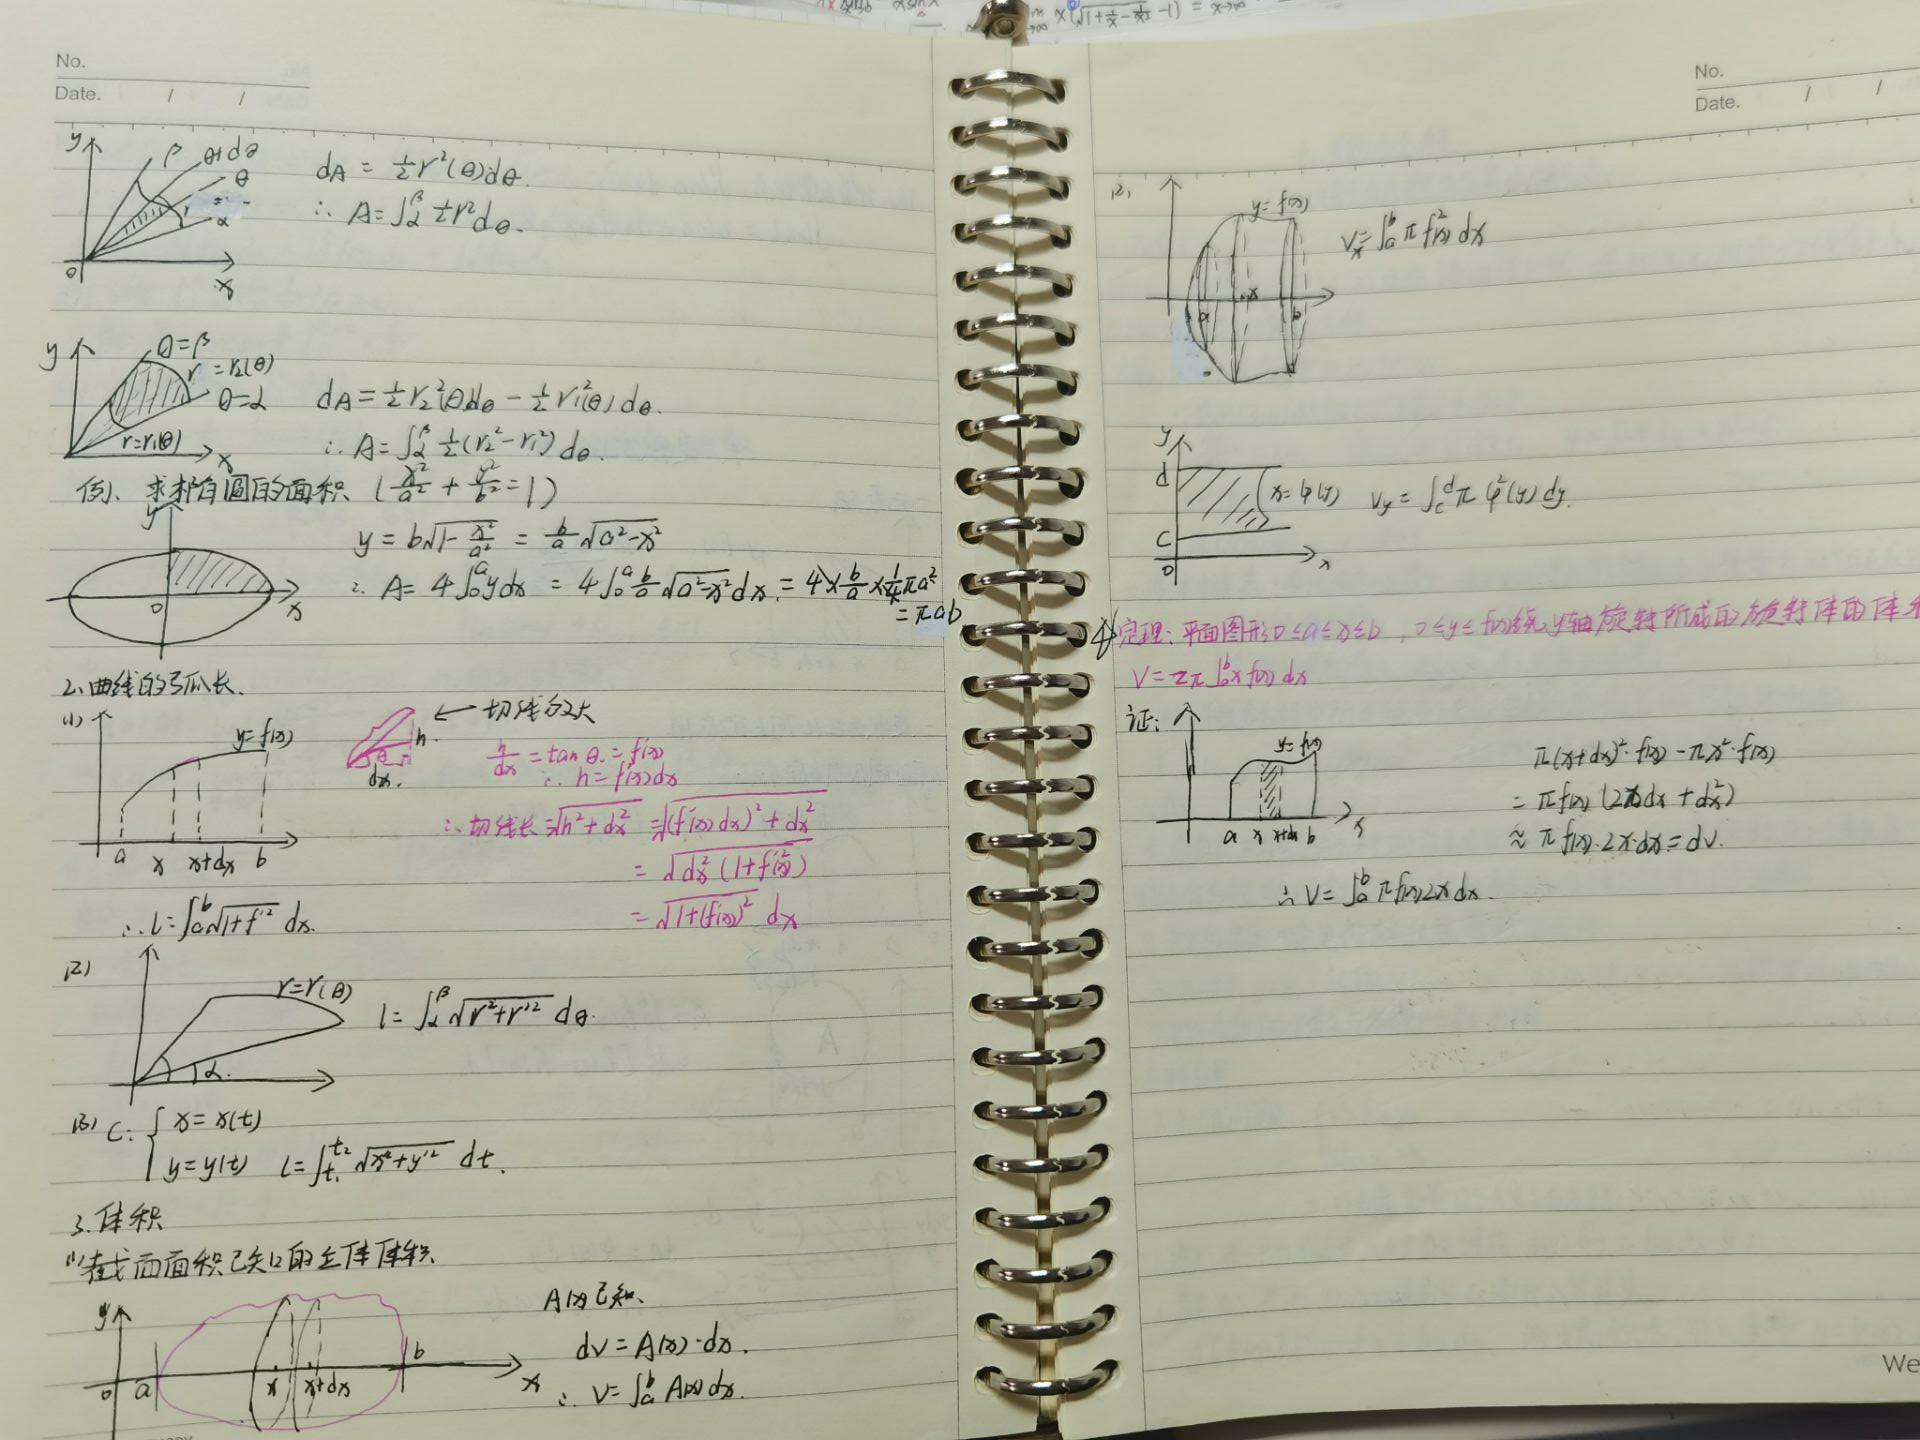 x(√(1+1/x-1/x²)-1) = x→∞
No.
Date. / /
y
β
θ+dθ
θ
α
0
x
dA = ½r²(θ)dθ.
∴ A=∫_α^β ½r²dθ.
y
θ=β
r=r₂(θ)
θ=α
r=r₁(θ)
x
dA=½r₂²(θ)dθ-½r₁²(θ)dθ.
∴ A=∫_α^β ½(r₂²-r₁²)dθ.
例、求椭圆的面积 (x²/a² + y²/b² = 1)
y
0
x
y = b√(1-x²/a²) = b/a √(a²-x²)
∴ A= 4∫_0^a ydx = 4∫_0^a b/a √(a²-x²) dx = 4×b/a×¼πa²
= πab
2、曲线的弧长.
(1)
y=f(x)
a x x+dx b
h.
θ
dx.
← 切线放大
h/dx = tanθ = f'(x)
∴ h = f'(x)dx
∴ 切线长=√(h²+dx²) =√((f'(x)dx)²+dx²)
= √(dx²(1+f'(x)²))
= √(1+(f'(x))²) dx
∴ l=∫_a^b √(1+f'²) dx.
(2)
r=r(θ)
α.
l=∫_α^β √(r²+r'²) dθ.
(3) C: { x=x(t)
y=y(t) l=∫_{t₁}^{t₂} √(x'²+y'²) dt.
3.体积
(1)截面面积已知的立体体积
y
0 a x x+dx b x
A(x)已知、
dv = A(x)·dx.
∴ V=∫_a^b A(x)dx.
No.
Date. / /
(2)
y=f(x)
a x b
Vx=∫_a^b πf²(x)dx
y
d
c
0
x
x=φ(y)
Vy = ∫_c^d π φ²(y) dy.
定理: 平面图形0≤a≤x≤b, 0≤y≤f(x)绕y轴旋转所成的旋转体的体
V=2π∫_a^b x f(x) dx
证:
y=f(x)
a x x+dx b x
π(x+dx)²·f(x)-πx²·f(x)
=πf(x)(2xdx+dx²)
≈πf(x)·2x·dx=dv.
∴ V=∫_a^b πf(x)2xdx.
We